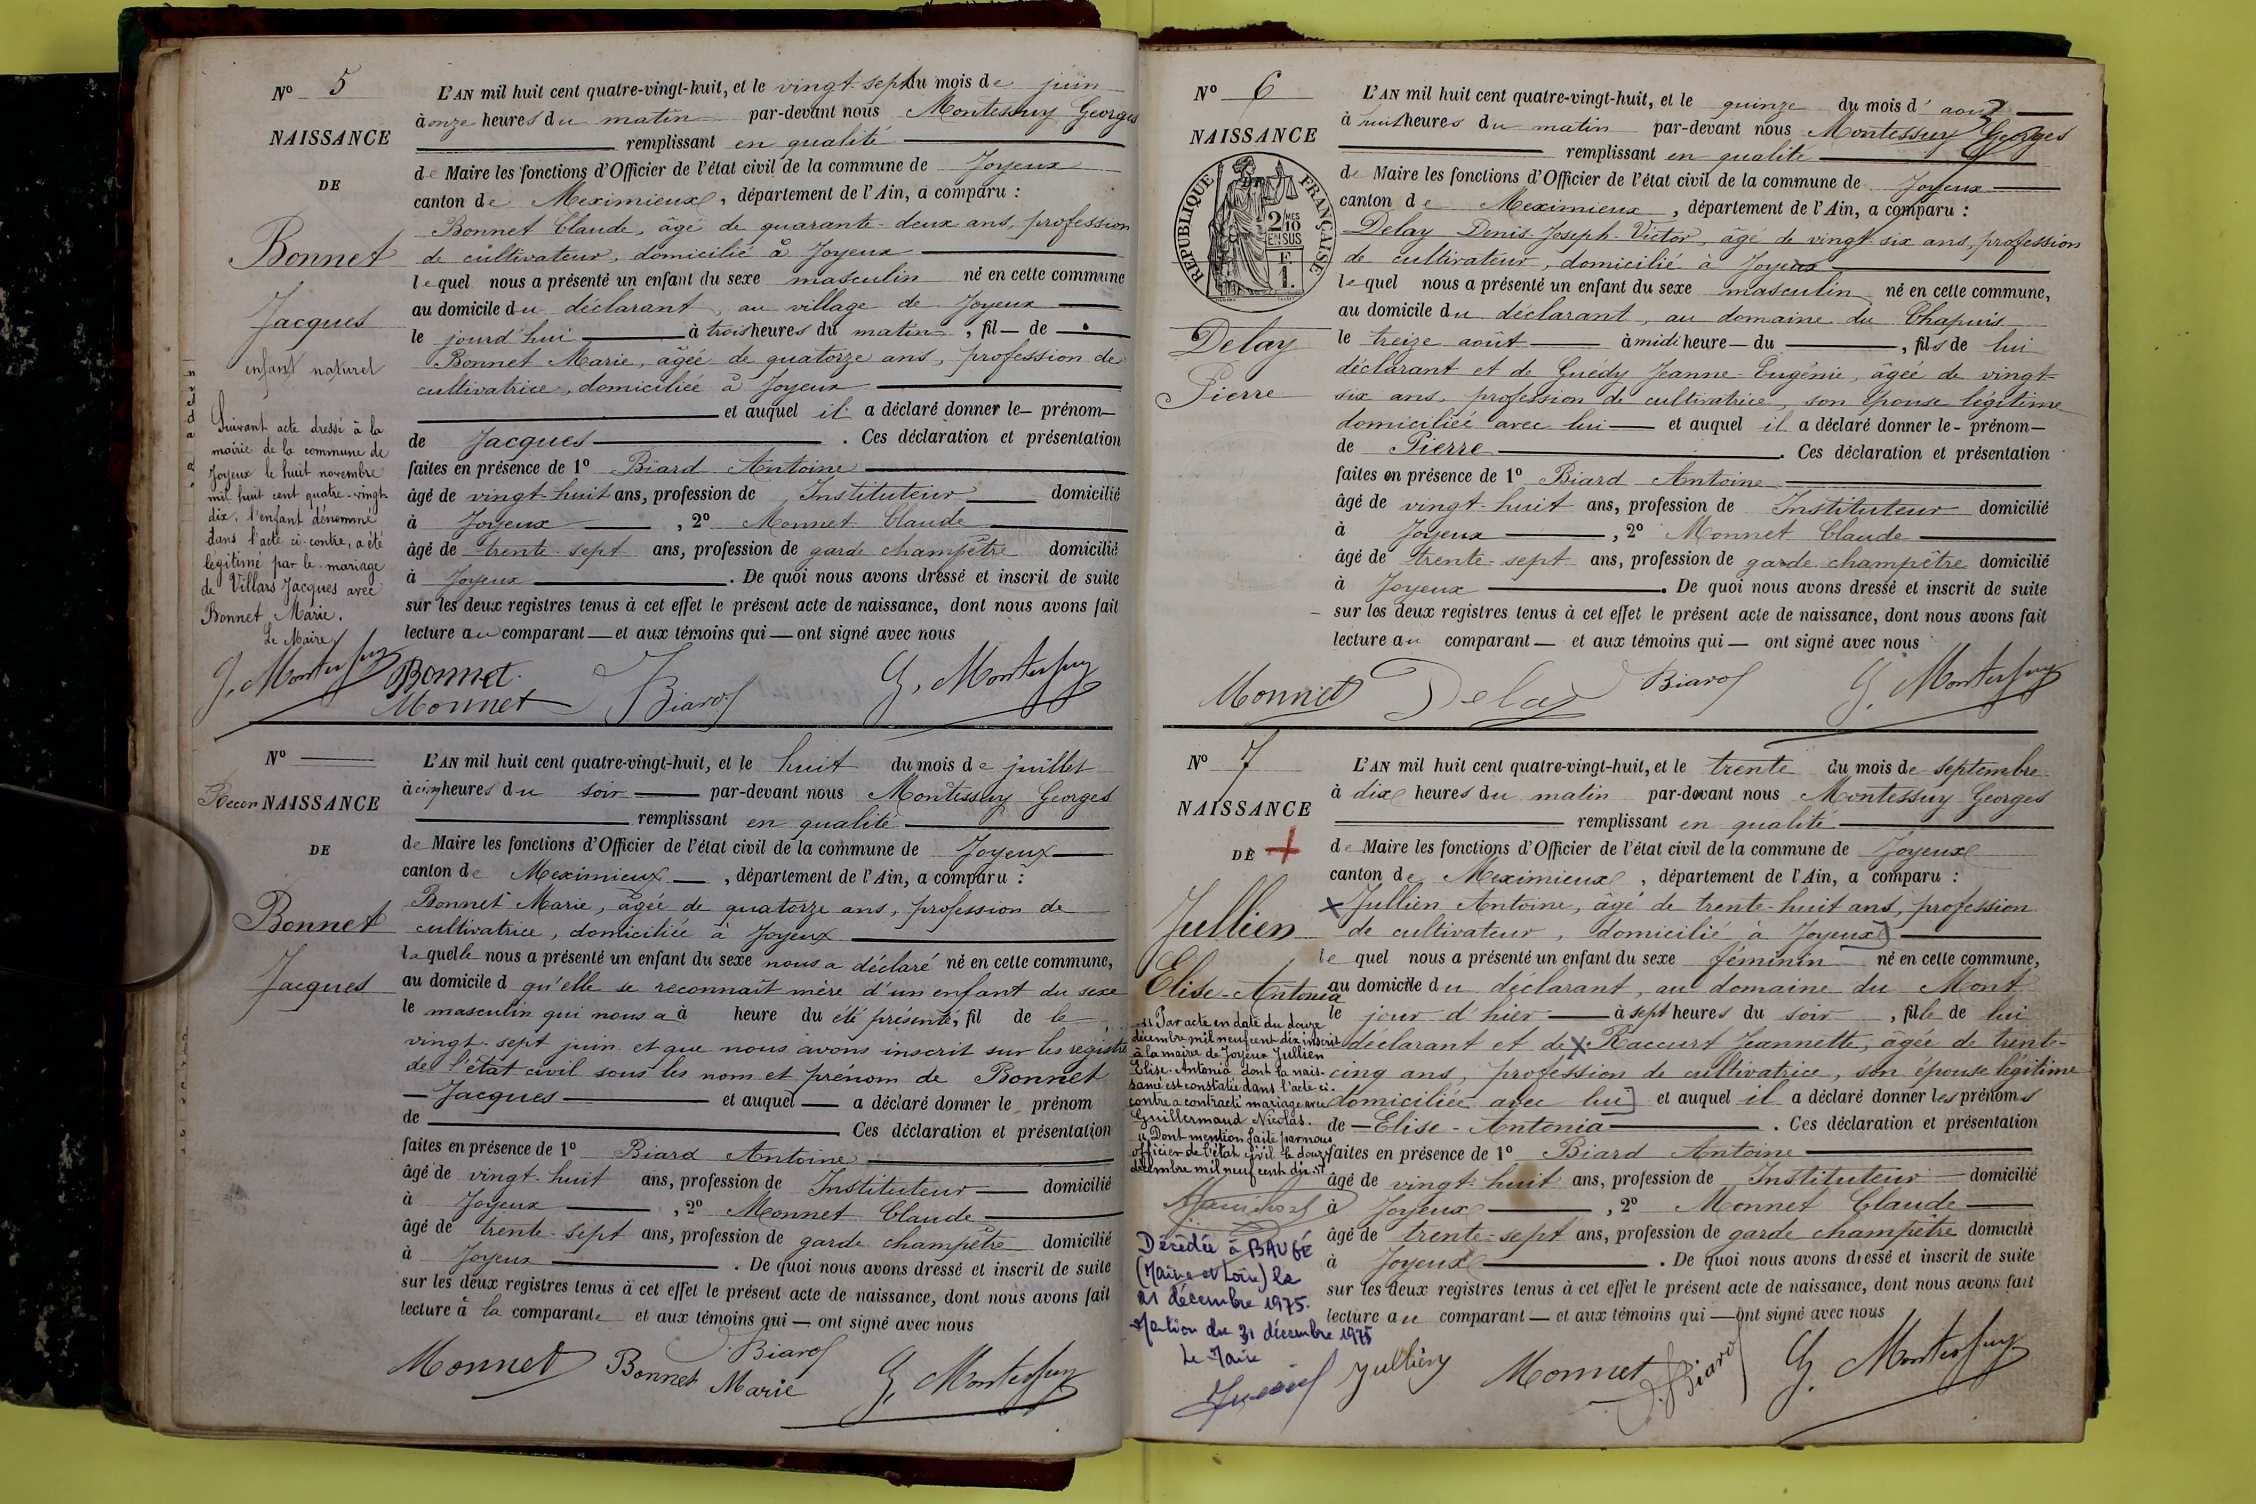 Nº 5
NAISSANCE
DE
Bonnet
Jacques
enfant naturel
Suivant acte dressé à la
mairie de la commune de
Joyeux le huit novembre
mil huit cent quatre-vingt-
dix, l'enfant dénommé
dans l'acte ci-contre, a été
légitimé par le mariage
de Villars Jacques avec
Bonnet Marie.
Le Maire
G. Montessuy
L'AN mil huit cent quatre-vingt-huit, et le vingt-sept du mois de juin
à onze heures du matin par-devant nous Montessuy Georges
remplissant en qualité
de Maire les fonctions d'Officier de l'état civil de la commune de Joyeux
canton de Meximieux, département de l'Ain, a comparu :
Bonnet Claude, âgé de quarante-deux ans, profession
de cultivateur, domicilié à Joyeux
lequel nous a présenté un enfant du sexe masculin né en cette commune
au domicile du déclarant, au village de Joyeux
le jourd'hui à trois heures du matin, fil de
Bonnet Marie, âgée de quatorze ans, profession de
cultivatrice, domiciliée à Joyeux
et auquel il a déclaré donner le prénom
de Jacques. Ces déclaration et présentation
faites en présence de 1º Biard Antoine
âgé de vingt-huit ans, profession de Instituteur domicilié
à Joyeux, 2º Monnet Claude
âgé de trente-sept ans, profession de garde champêtre domicilié
à Joyeux. De quoi nous avons dressé et inscrit de suite
sur les deux registres tenus à cet effet le présent acte de naissance, dont nous avons fait
lecture au comparant et aux témoins qui ont signé avec nous
Bonnet
Monnet Biard G. Montessuy
Nº
Recon NAISSANCE
DE
Bonnet
Jacques
L'AN mil huit cent quatre-vingt-huit, et le huit du mois de juillet
à cinq heures du soir par-devant nous Montessuy Georges
remplissant en qualité
de Maire les fonctions d'Officier de l'état civil de la commune de Joyeux
canton de Meximieux, département de l'Ain, a comparu :
Bonnet Marie, âgée de quatorze ans, profession de
cultivatrice, domiciliée à Joyeux
laquelle nous a présenté un enfant du sexe nous a déclaré né en cette commune,
au domicile d qu'elle se reconnaît mère d'un enfant du sexe
le masculin qui nous a à heure du été présenté, fil de le
vingt-sept juin et que nous avons inscrit sur les registre
de l'état civil sous les nom et prénom de Bonnet
Jacques et auquel a déclaré donner le prénom
de Ces déclaration et présentation
faites en présence de 1º Biard Antoine
âgé de vingt-huit ans, profession de Instituteur domicilié
à Joyeux, 2º Monnet Claude
âgé de trente-sept ans, profession de garde champêtre domicilié
à Joyeux. De quoi nous avons dressé et inscrit de suite
sur les deux registres tenus à cet effet le présent acte de naissance, dont nous avons fait
lecture à la comparante et aux témoins qui ont signé avec nous
Monnet Bonnet Marie Biard G. Montessuy
Nº 6
NAISSANCE
RÉPUBLIQUE FRANÇAISE
2/10 MES
EN SUS
F.
1.
Delay
Pierre
L'AN mil huit cent quatre-vingt-huit, et le quinze du mois d'août
à huit heures du matin par-devant nous Montessuy Georges
remplissant en qualité
de Maire les fonctions d'Officier de l'état civil de la commune de Joyeux
canton de Meximieux, département de l'Ain, a comparu :
Delay Denis-Joseph-Victor, âgé de vingt-six ans, profession
de cultivateur, domicilié à Joyeux
lequel nous a présenté un enfant du sexe masculin né en cette commune,
au domicile du déclarant, au domaine du Chapuis
le treize août à midi heure du, fils de lui
déclarant et de Guédy Jeanne-Eugénie, âgée de vingt-
six ans, profession de cultivatrice, son épouse légitime
domiciliée avec lui et auquel il a déclaré donner le prénom
de Pierre. Ces déclaration et présentation
faites en présence de 1º Biard Antoine
âgé de vingt-huit ans, profession de Instituteur domicilié
à Joyeux, 2º Monnet Claude
âgé de trente-sept ans, profession de garde champêtre domicilié
à Joyeux. De quoi nous avons dressé et inscrit de suite
sur les deux registres tenus à cet effet le présent acte de naissance, dont nous avons fait
lecture au comparant et aux témoins qui ont signé avec nous
Monnet Delay Biard G. Montessuy
Nº 7
NAISSANCE
DE
Jullien
Elise-Antonia
Par acte en date du douze
décembre mil neuf cent dix inscrit
à la mairie de Joyeux Jullien
Elise-Antonia dont la nais-
sance est constatée dans l'acte ci-
contre a contracté mariage avec
Guillermaud Nicolas.
Dont mention faite par nous
officier de l'état civil le douze
décembre mil neuf cent dix
Décédée à BAUGÉ
(Maine et Loire) le
21 décembre 1975.
Mention du 31 décembre 1975
Le Maire
L'AN mil huit cent quatre-vingt-huit, et le trente du mois de septembre
à dix heures du matin par-devant nous Montessuy Georges
remplissant en qualité
de Maire les fonctions d'Officier de l'état civil de la commune de Joyeux
canton de Meximieux, département de l'Ain, a comparu :
Jullien Antoine, âgé de trente-huit ans, profession
de cultivateur, domicilié à Joyeux
lequel nous a présenté un enfant du sexe féminin né en cette commune,
au domicile du déclarant, au domaine du Mont
le jour d'hier à sept heures du soir, fille de lui
déclarant et de Raccurt Jeannette, âgée de trente-
cinq ans, profession de cultivatrice, son épouse légitime
domiciliée avec lui et auquel il a déclaré donner les prénoms
de Elise-Antonia. Ces déclaration et présentation
faites en présence de 1º Biard Antoine
âgé de vingt-huit ans, profession de Instituteur domicilié
à Joyeux, 2º Monnet Claude
âgé de trente-sept ans, profession de garde champêtre domicilié
à Joyeux. De quoi nous avons dressé et inscrit de suite
sur les deux registres tenus à cet effet le présent acte de naissance, dont nous avons fait
lecture au comparant et aux témoins qui ont signé avec nous
Jullien Monnet Biard G. Montessuy